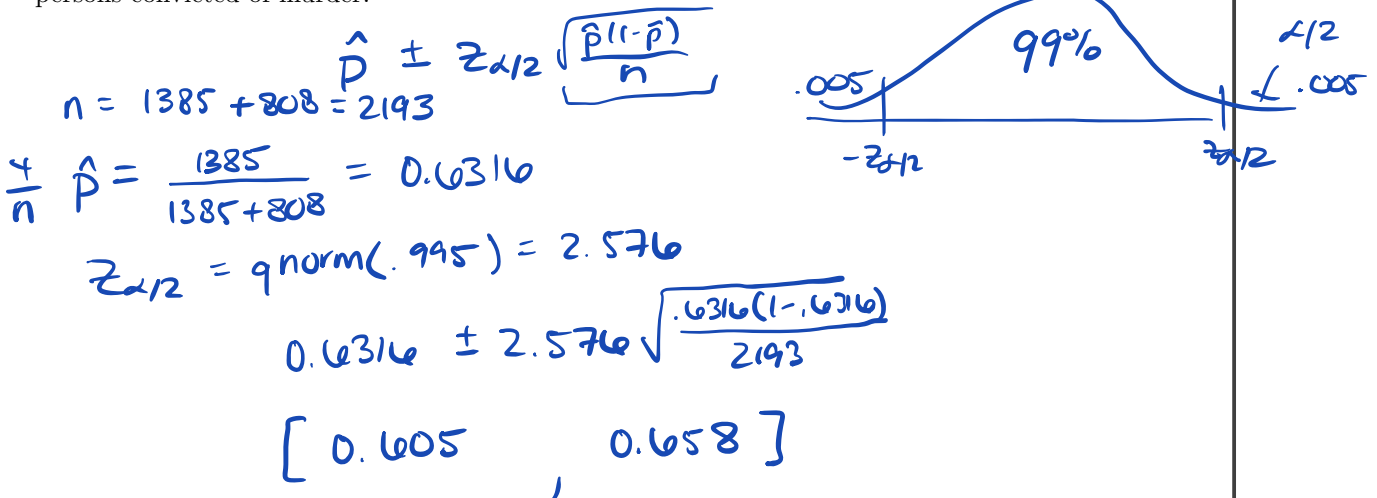 persons convicted of murder.
p̂ ± z_{α/2} √(p̂(1-p̂)/n)
n = 1385 + 808 = 2193
y/n p̂ = 1385/(1385+808) = 0.6316
z_{α/2} = qnorm(.995) = 2.576
0.6316 ± 2.576 √(.6316(1-.6316)/2193)
[ 0.605 , 0.658 ]
99%
α/2
.005
.005
-z_{α/2}
z_{α/2}